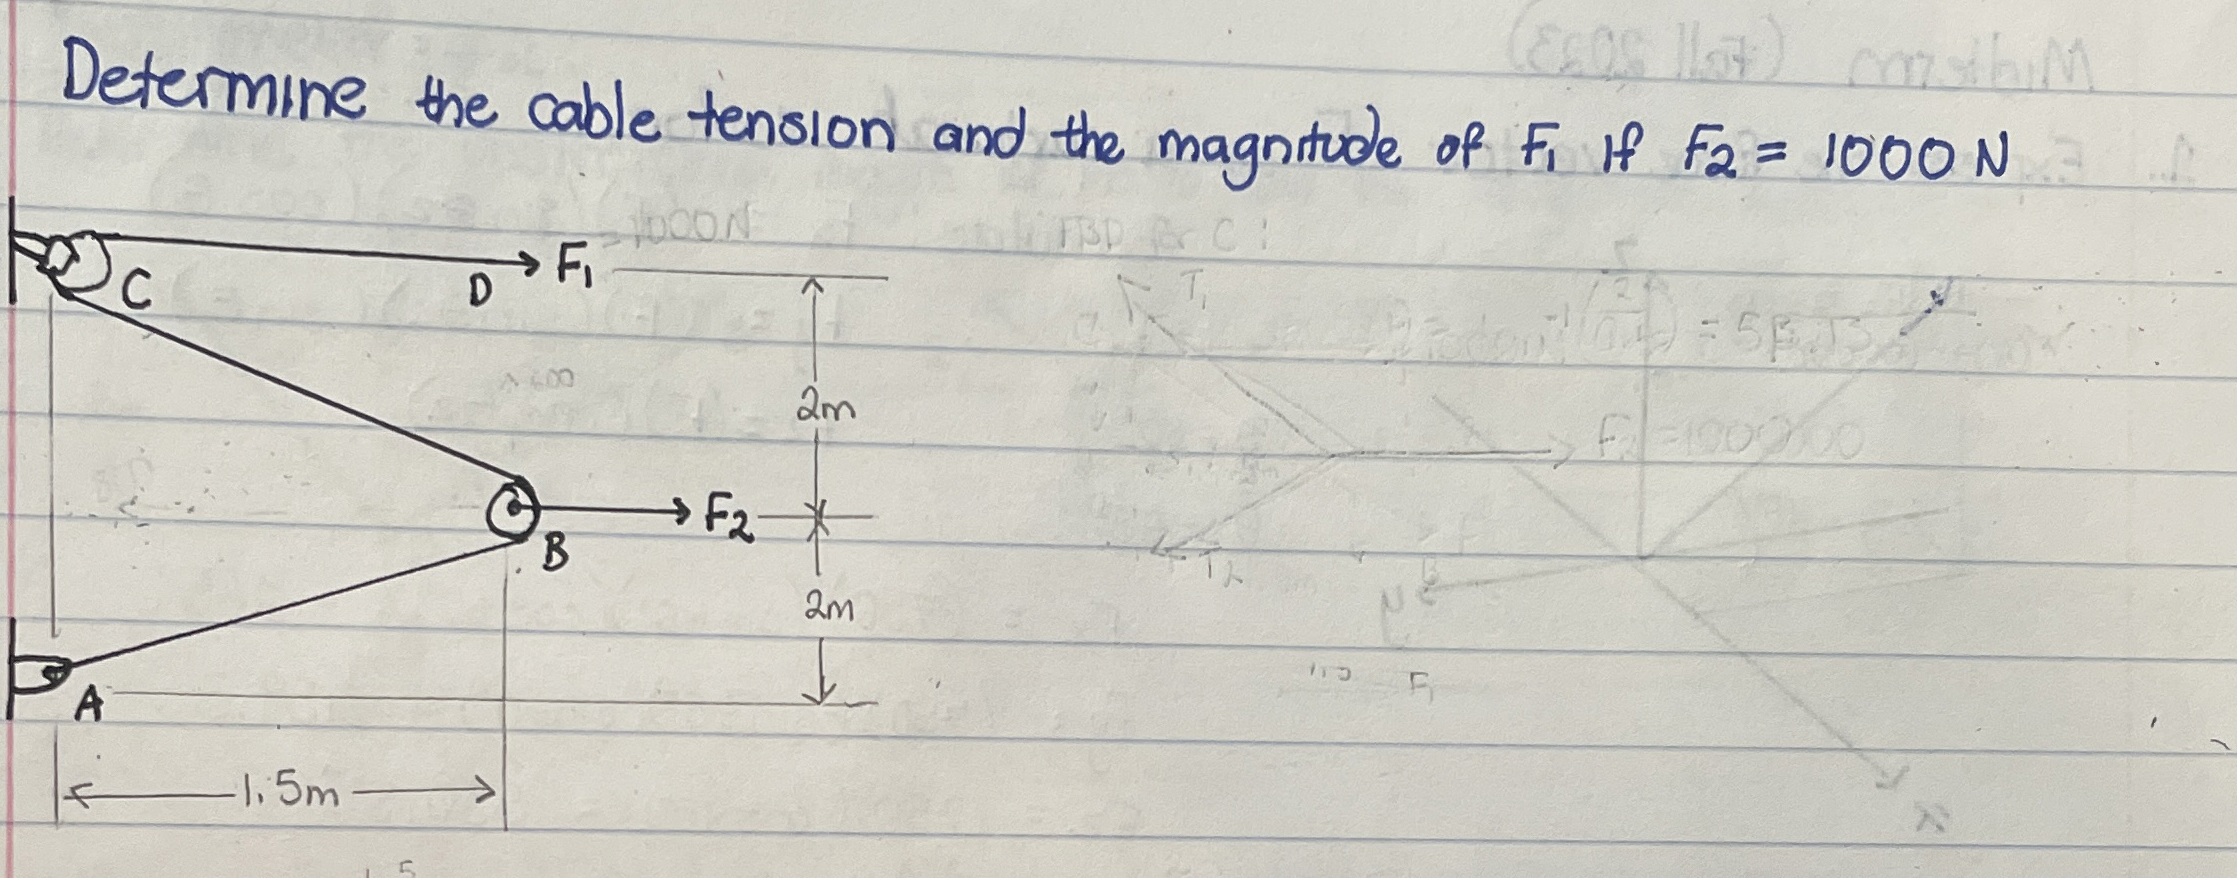 Determine the cable tension and the magnitude of F₁ if F₂ = 1000 N
C
D
F₁
2m
F₂
B
2m
A
1.5m